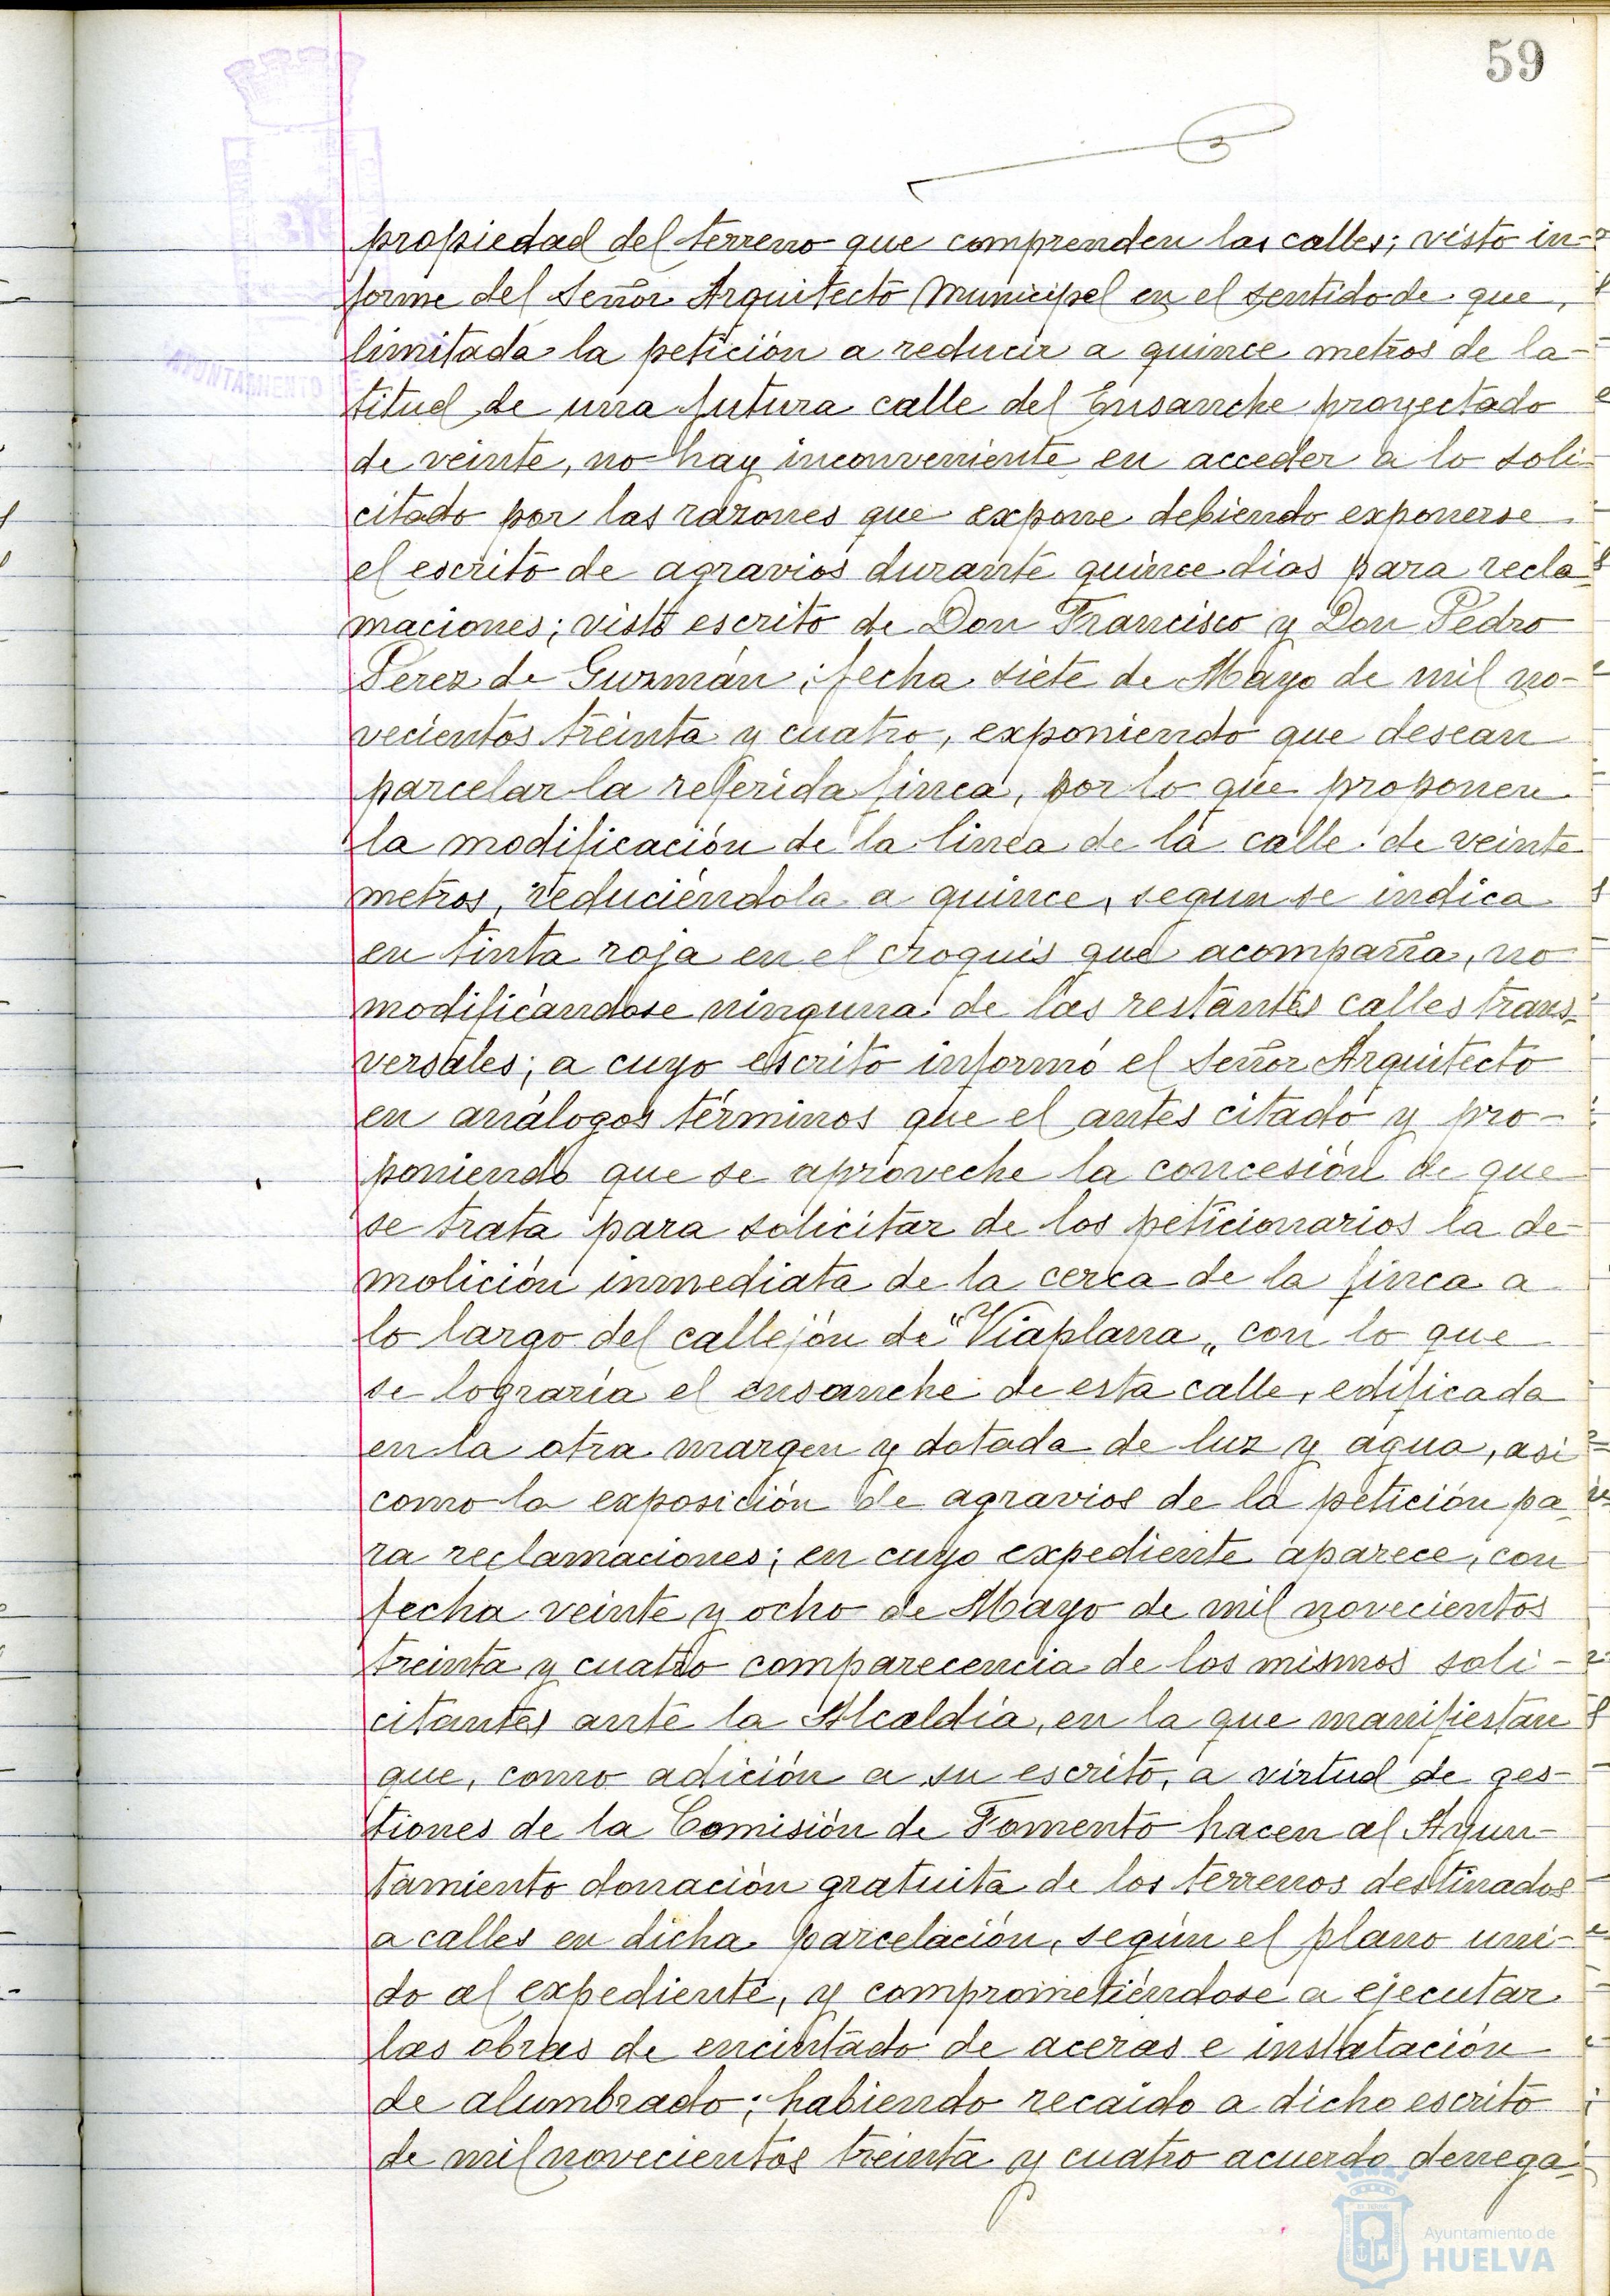 59
propiedad del terreno que comprenden las calles; visto in-
forme del Señor Arquitecto Municipal en el sentido de que,
limitada la petición a reducir a quince metros de la-
titud de una futura calle del Ensanche proyectado
de veinte, no hay inconveniente en acceder a lo soli-
citado por las razones que expone debiendo exponerse
el escrito de agravios durante quince dias para recla-
maciones; visto escrito de Don Francisco y Don Pedro
Pérez de Guzmán, fecha siete de Mayo de mil no-
vecientos treinta y cuatro, exponiendo que desean
parcelar la referida finca, por lo que proponen
la modificación de la linea de la calle de veinte
metros, reduciéndola a quince, segun se indica
en tinta roja en el croquis que acompaña, no
modificandose ninguna de las restantes calles trans-
versales; a cuyo escrito informó el Señor Arquitecto
en análogos términos que el antes citado y pro-
poniendo que se aproveche la concesión de que
se trata para solicitar de los peticionarios la de-
molición inmediata de la cerca de la finca a
lo largo del callejón de "Viaplana", con lo que
se lograría el ensanche de esta calle, edificada
en la otra margen y dotada de luz y agua, asi
como la exposición de agravios de la petición pa-
ra reclamaciones; en cuyo expediente aparece, con
fecha veinte y ocho de Mayo de mil novecientos
treinta y cuatro comparecencia de los mismos soli-
citantes ante la Alcaldía, en la que manifiestan
que, como adición a su escrito, a virtud de ges-
tiones de la Comisión de Fomento hacen al Ayun-
tamiento donación gratuita de los terrenos destinados
a calles en dicha parcelación, según el plano uni-
do al expediente, y comprometiéndose a ejecutar
las obras de encintado de aceras e instalación
de alumbrado; habiendo recaido a dicho escrito
de mil novecientos treinta y cuatro acuerdo denega-
AYUNTAMIENTO
Ayuntamiento de
HUELVA